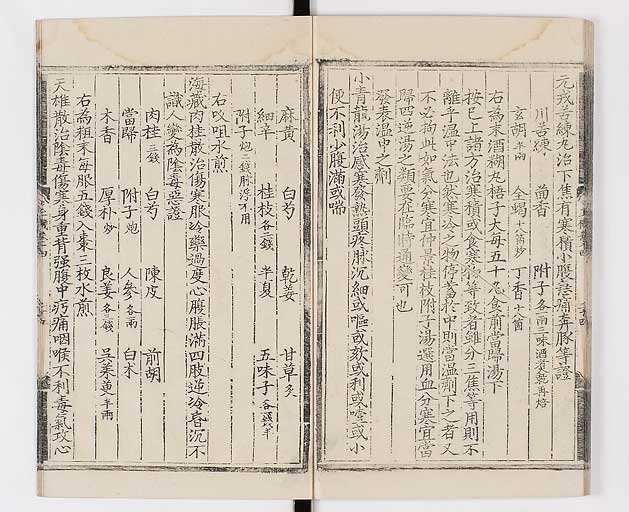 元戎苦練丸治下焦有寒積小腹急痛奔豚等證
川苦練 茴香 附子各一兩三味酒煮乾再焙
玄胡半兩 全蝎十八箇炒 丁香十八箇
右為末酒糊丸梧子大每五十丸食前當歸湯下
按已上諸方治寒積或食寒物等致者雖分三焦等用則不
離乎溫中法也然寒冷之物停蓄於中則當溫劑下之者又
不必拘此如氣分寒宜仲景桂枝附子湯選用血分寒宜當
歸四逆湯之類要在臨時通變可也
發表溫中之劑
小青龍湯治感寒發熱頭疼脉沉細或嘔或欬或利或噎或小
便不利少腹滿或喘
麻黃 白芍 乾姜 甘草炙
細辛 桂枝各三錢 半夏 五味子
附子炮二錢脉浮不用
右㕮咀水煎
海藏肉桂散治傷寒服冷藥過度心腹脹滿四肢逆冷昏沉不
識人變為陰毒惡證
肉桂三錢 白芍 陳皮 前胡
當歸 附子炮 人參各一兩 白朮
木香 厚朴炒 良姜各三錢 吳茱萸半兩
右為粗末每服五錢入棗三枚水煎
天雄散治陰毒傷寒身重背强腹中㽲痛咽喉不利毒氣攻心